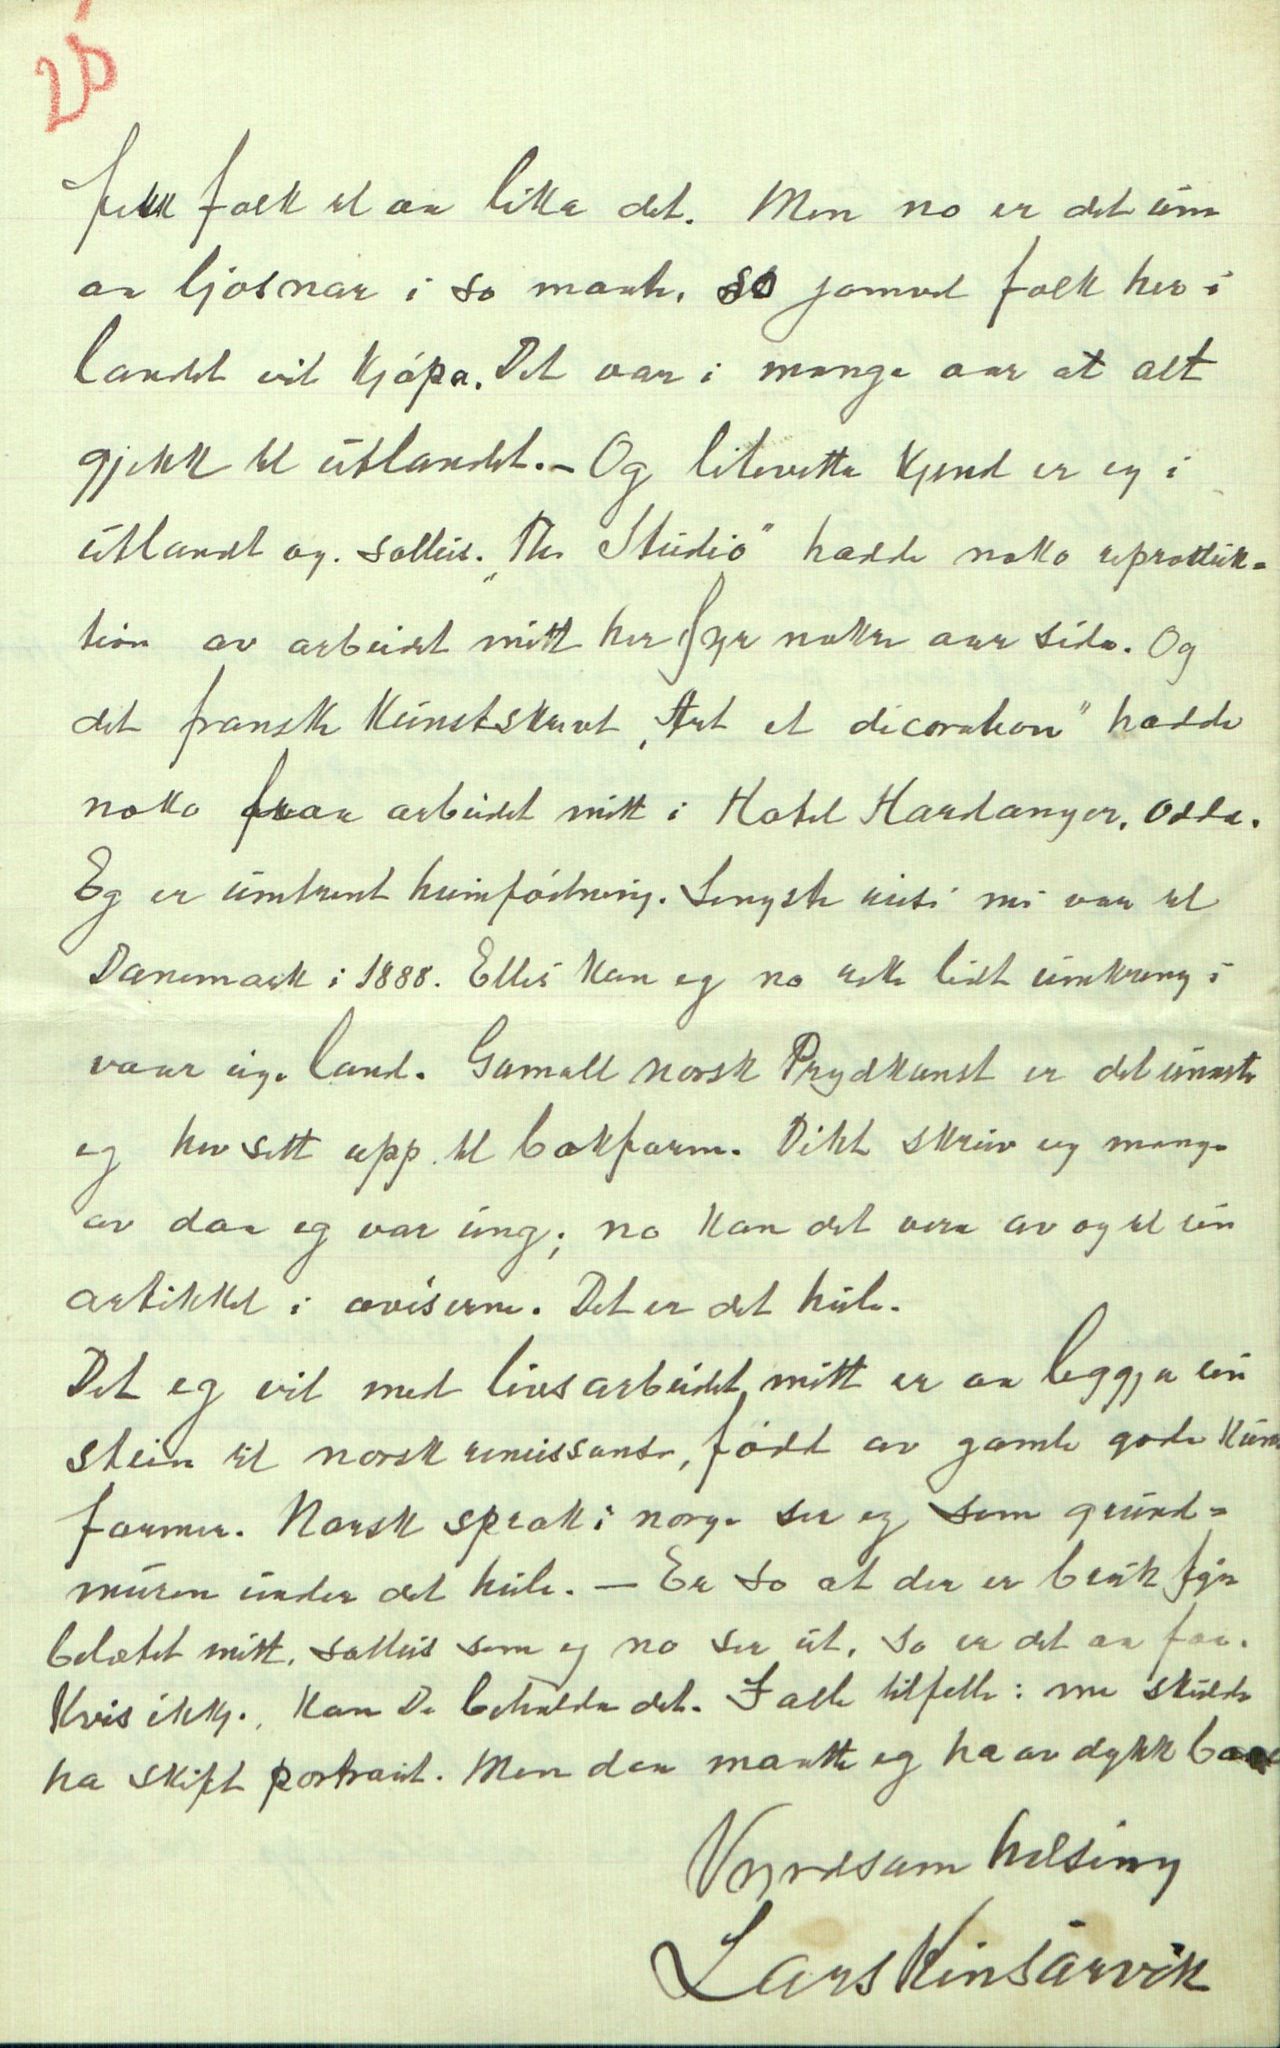 fekk folk til aa lika det. Men no er det um
aa ljosnar i so maate, so jamvel folk her i
landet vil kjøpa. Det var i mange aar at alt
gjekk til utlandet. – Og litevetta kjend er eg i
utlandet og. soleis. "The Studio" hadde noko reproduk-
tion av arbeidet mitt her fyr nokre aar sida. Og
det franske kunstskrivt "Art et décoration" hadde
noko fraa arbeidet mitt i Hotel Hardanger, Odda.
Eg er umtrent heimføding. Lengste reisi mi var til
Danemark i 1888. Elles kan eg no reka lidt umkring i
vaar eige land. Gamall norsk Prydkunst er det einaste
eg hev sett upp til bokform. Dikt skreiv eg mange
av daa eg var ung; no kan det vera av og til ein
artikkel i aviserne. Det er det heile.
Det eg vil med livsarbeidet mitt er aa leggja ein
stein til norsk renæissanse, fødd av gamle gode kunst
former. Norsk spraak i norge ser eg som grund-
muren under det heile. – Er so at der er bruk fyr
belætet mitt, soleis som eg no ser ut, so er det aa faa.
Kvis ikkje, kan De behalda det. I alle tilfelle: me skulde
ha skift portrait. Men daa maatte eg ha av dykk baae
Vyrdsam helsing
Lars Kinsarvik